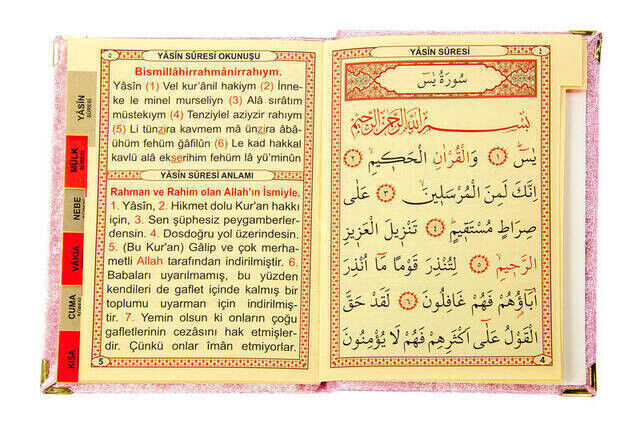 ٥
YÂSÎN SÛRESİ OKUNUŞU
Bismillâhirrahmânirrahıym.
Yâsîn (1) Vel kur'ânil hakiym (2) İnne-
ke le minel murseliyn (3) Alâ sırâtım
müstekıym (4) Tenziylel aziyzir rahıym
(5) Li tünzira kavmem mâ ünzira âbâ-
ühüm fehüm ğâfilûn (6) Le kad hakkal
kavlü alâ ekserihim fehüm lâ yü'minûn
YÂSÎN SÛRESİ ANLAMI
Rahman ve Rahim olan Allah'ın İsmiyle.
1. Yâsîn, 2. Hikmet dolu Kur'an hakkı
için, 3. Sen şüphesiz peygamberler-
densin. 4. Dosdoğru yol üzerindesin.
5. (Bu Kur'an) Gâlip ve çok merha-
metli Allah tarafından indirilmiştir. 6.
Babaları uyarılmamış, bu yüzden
kendileri de gaflet içinde kalmış bir
toplumu uyarman için indirilmiş-
tir. 7. Yemin olsun ki onların çoğu
gafletlerinin cezasını hak etmişler-
dir. Çünkü onlar îmân etmiyorlar.
5
YÂSİN
SÛRESİ
MÜLK
SÛRESİ
NEBE
VÂKIA
CUMA
KISA
YÂSÎN SÛRESİ
٤
سُورَةُ يٰسٓ
بِسْمِ اللّٰهِ الرَّحْمٰنِ الرَّحِيمِ
يٰسٓ ﴿١﴾ وَالْقُرْاٰنِ الْحَكِيمِ ﴿٢﴾
اِنَّكَ لَمِنَ الْمُرْسَلِينَ ﴿٣﴾ عَلٰى
صِرَاطٍ مُسْتَقِيمٍ ﴿٤﴾ تَنْزِيلَ الْعَزِيزِ
الرَّحِيمِ ﴿٥﴾ لِتُنْذِرَ قَوْمًا مَٓا اُنْذِرَ
اٰبَٓاؤُهُمْ فَهُمْ غَافِلُونَ ﴿٦﴾ لَقَدْ حَقَّ
الْقَوْلُ عَلٰٓى اَكْثَرِهِمْ فَهُمْ لَا يُؤْمِنُونَ
4